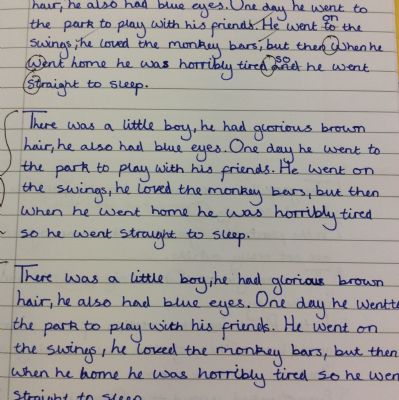 hair, he also had blue eyes. One day he went to
the park to play with his friends. He went to on
swings, he loved the monkey bars, but then When he
went home he was horribly tired and so he went
straight to sleep.
There was a little boy, he had glorious brown
hair, he also had blue eyes. One day he went to
the park to play with his friends. He went on
the swings, he loved the monkey bars, but then
when he went home he was horribly tired
so he went straight to sleep.
There was a little boy, he had glorious brown
hair, he also had blue eyes. One day he went to
the park to play with his friends. He went on
the swings, he loved the monkey bars, but then
when he home he was horribly tired so he wen
straight to sleep